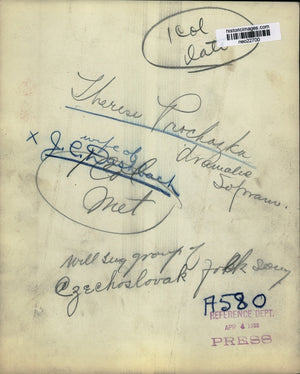 1 col
late
historicimages.com
neo22700
Therese Prochazka
dramatic
Soprano.
x wife of
J. C.
Met
will sing group of
Czechoslovak folk song
A580
REFERENCE DEPT.
APR 4
PRESS